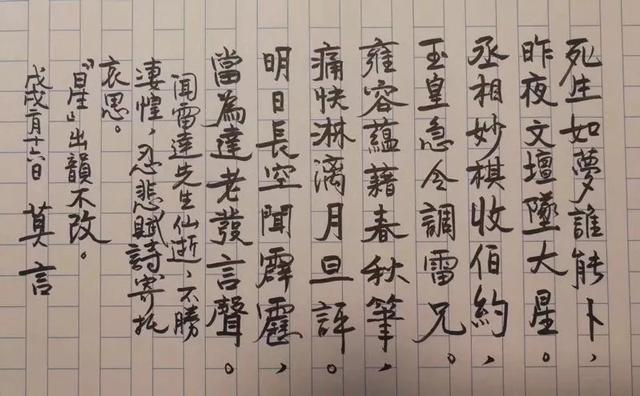 死生如夢誰能卜，
昨夜文壇墜大星。
丞相妙棋收伯約，
玉皇急令調雷兄。
雍容蘊藉春秋筆，
痛快淋漓月旦評。
明日長空聞霹靂，
當為達老發言聲。
闻雷達先生仙逝，不勝
淒惶，忍悲賦詩寄托
哀思。
"星"出韻不改。
戊戌二月十六日 莫言